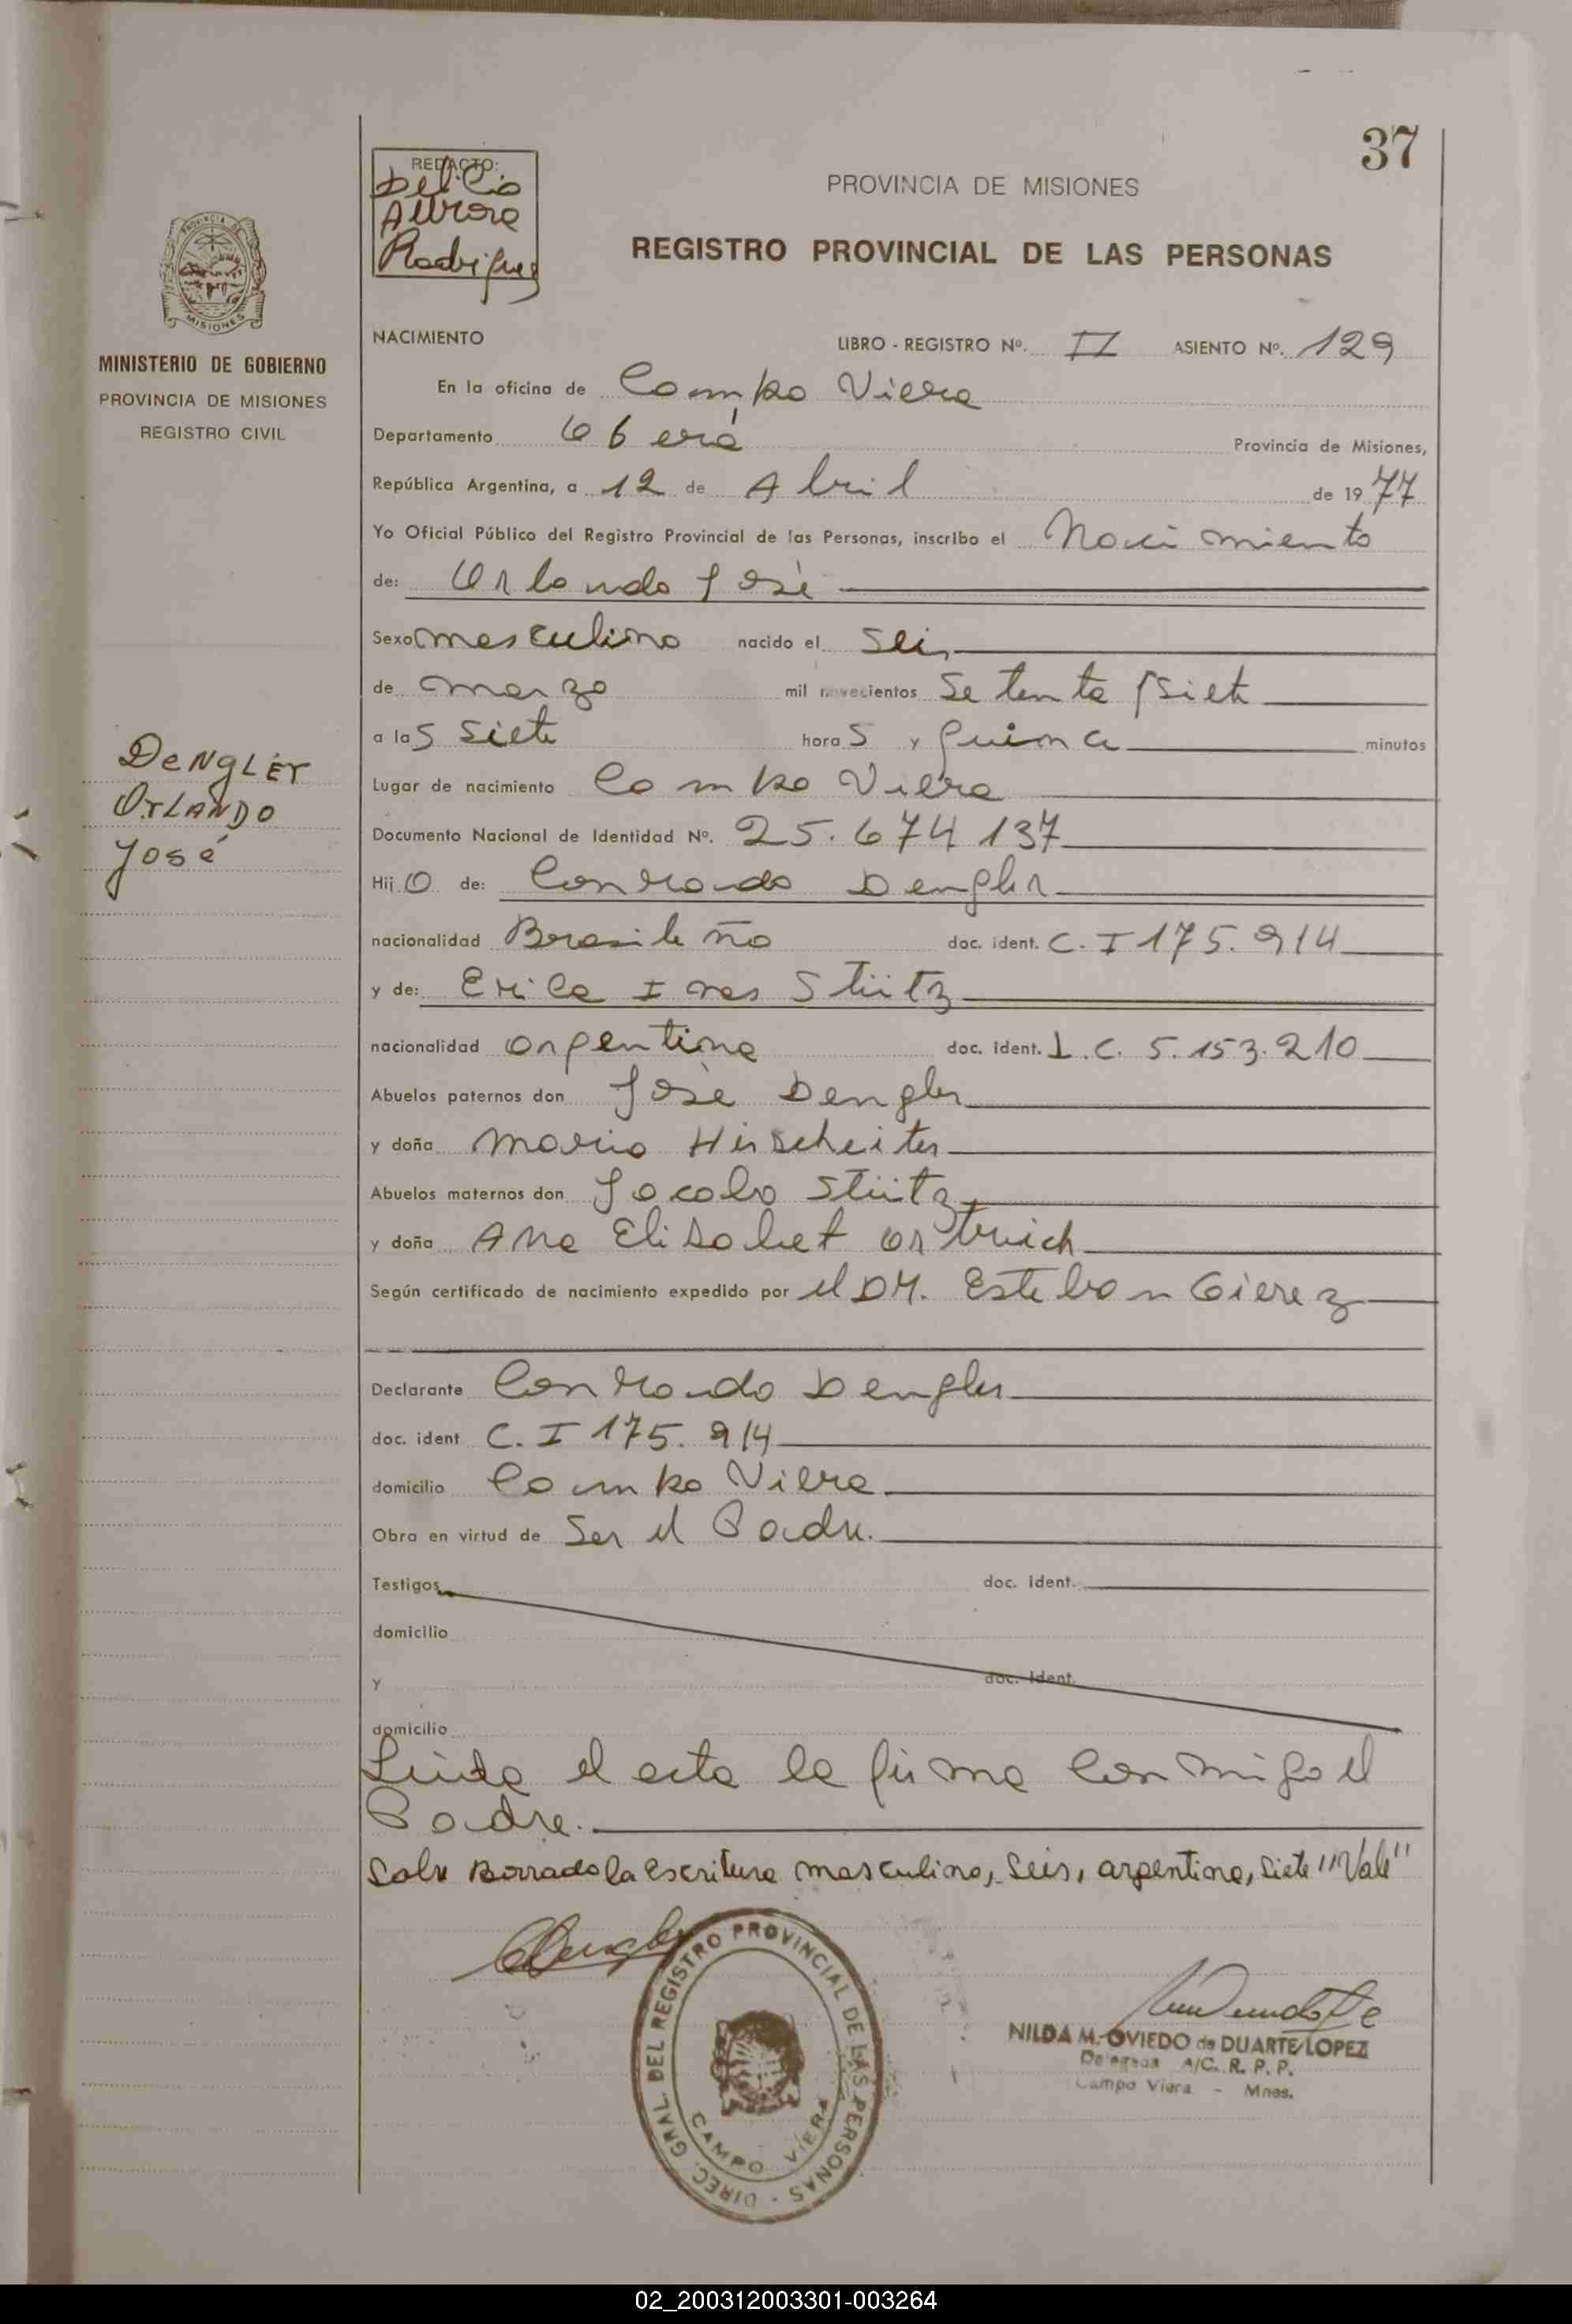 37
REDACTO:
Delicia
Aurora
Rodriguez
PROVINCIA DE MISIONES
REGISTRO PROVINCIAL DE LAS PERSONAS
PROVINCIA DE MISIONES
MINISTERIO DE GOBIERNO
PROVINCIA DE MISIONES
REGISTRO CIVIL
NACIMIENTO LIBRO - REGISTRO Nº. II ASIENTO Nº. 129
En la oficina de Campo Viera
Departamento Oberá Provincia de Misiones,
República Argentina, a 12 de Abril de 1977
Yo Oficial Público del Registro Provincial de las Personas, inscribo el Nacimiento
de: Orlando José
Sexo masculino nacido el seis
de marzo mil novecientos setenta y siete
a las siete horas y quince minutos
Lugar de nacimiento Campo Viera
Documento Nacional de Identidad Nº. 25.674137
Hijo de: Conrado Dengler
nacionalidad Brasileño doc. ident. C.I 175.914
y de: Erica Ines Stütz
nacionalidad argentina doc. ident. L.C. 5.153.210
Abuelos paternos don José Dengler
y doña Maria Hirscheiter
Abuelos maternos don Jacobo Stütz
y doña Ana Elisabet
Según certificado de nacimiento expedido por el DR. Esteban Gierez
Declarante Conrado Dengler
doc. ident C.I 175.914
domicilio Campo Viera
Obra en virtud de Ser el Padre.
Testigos doc. ident.
domicilio
y doc. ident.
domicilio
Leída el acta la firma conmigo el
Padre.
Salv Borrado la escritura masculino, seis, argentina, siete "Vale"
DENGLEr
OrLANDO
José
DIREC. GRAL. DEL REGISTRO PROVINCIAL DE LAS PERSONAS -
CAMPO VIERA
NILDA M. OVIEDO de DUARTE LOPEZ
Delegada A/C. R. P. P.
Campo Viera - Mnes.
02_200312003301-003264